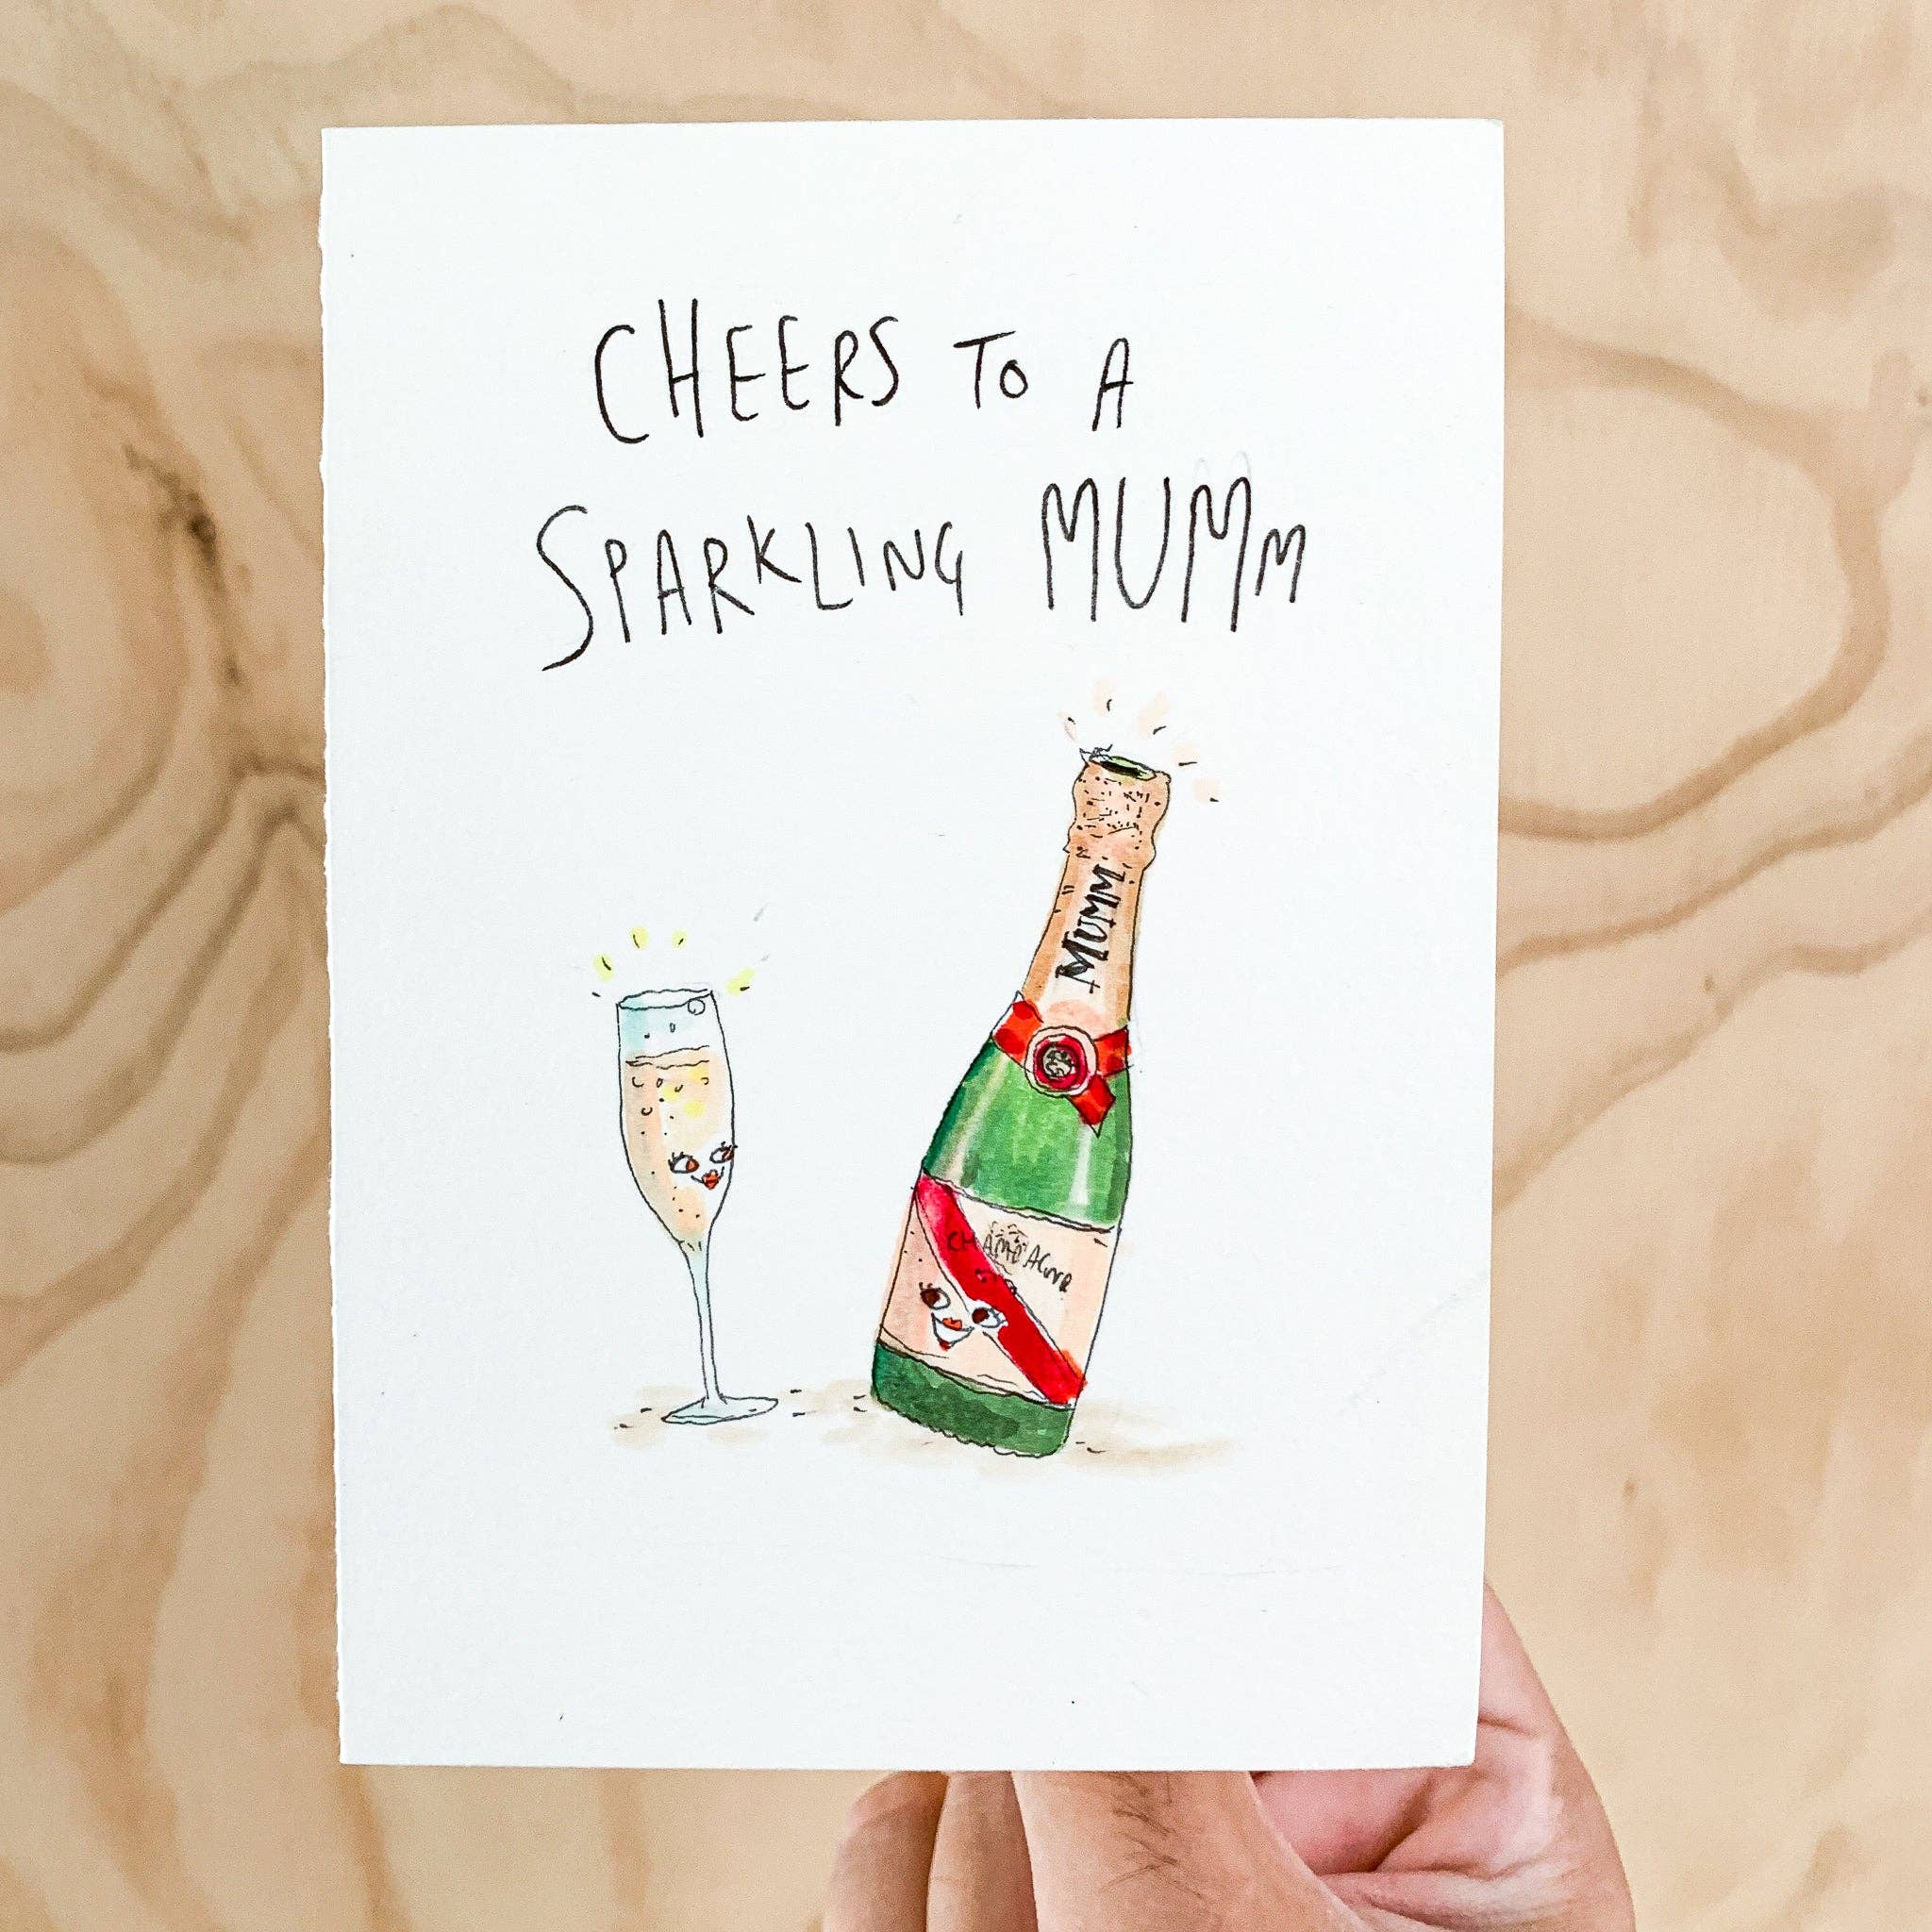 CHEERS TO A
SPARKLING MUMM
MUMM
CHAMPAGNE